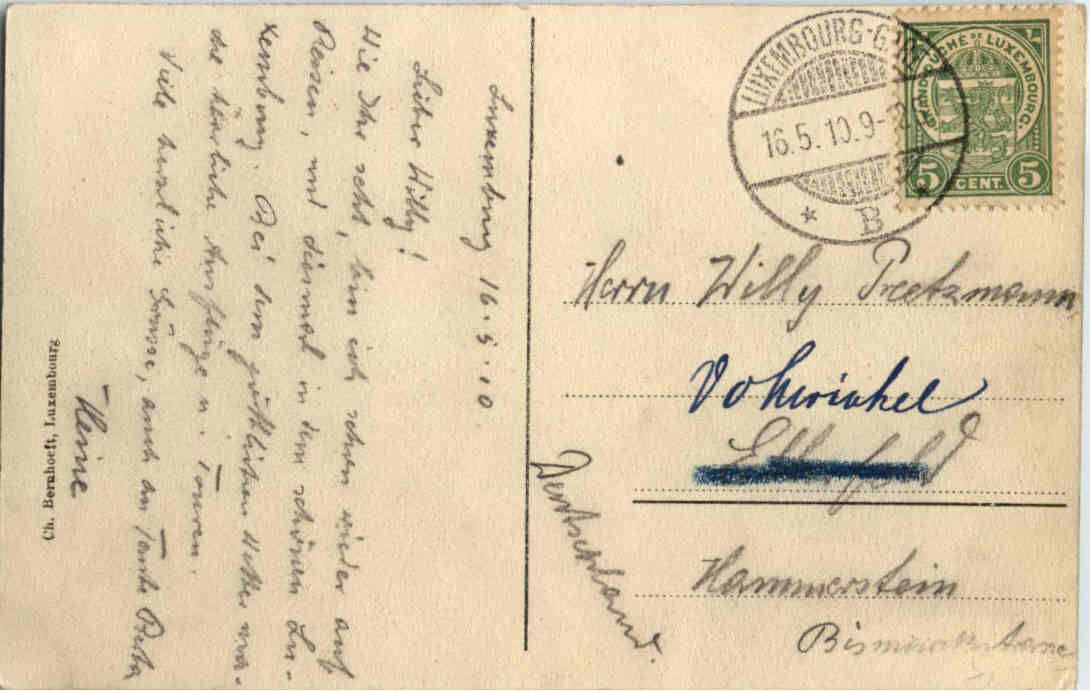 Luxemburg 16.5.10
Lieber Willy!
Wie Ihr seht, bin ich schon wieder auf
Reisen, und diesmal in dem schönen Lu-
xemburg. Bei dem göttlichen Wetter ma-
che herrliche Ausflüge u. Touren.
Viele herzliche Grüsse, auch an Tante Berta
Heine
Ch. Bernhoeft, Luxembourg
LUXEMBOURG-GARE
16.5.10.9-
* B *
GRAND-DUCHÉ DE LUXEMBOURG.
5 CENT. 5
Herrn Willy Preetzmann
Vohwinkel
Elberfeld
Hammerstein
Bismarckstrasse
Deutschland.